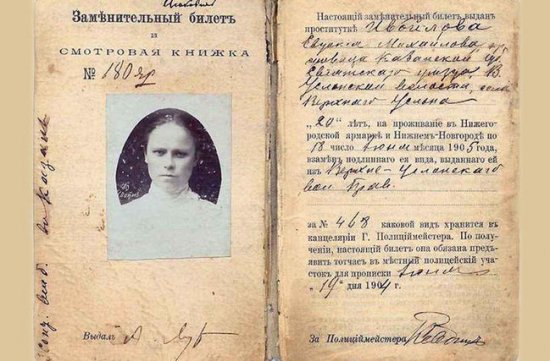 Замѣнительный билетъ
и
СМОТРОВАЯ КНИЖКА
№ 180 яр.
Выдалъ
Настоящій замѣнительный билетъ выданъ
проституткѣ
Евгенія Михайлова
Казанской
Свіяжскаго уѣзда, В.
Услонской волости, села
Верхняго Услона
„20“ лѣтъ, на проживаніе въ Нижего-
родской ярмаркѣ и Нижнемъ-Новгородѣ по
18 число мѣсяца 1905 года,
взамѣнъ подлиннаго ея вида, выданнаго ей
изъ Верхне-Услонскаго
вол. Прав.
за № 468 каковой видъ хранится въ
канцеляріи Г. Полиціймейстера. По полу-
ченіи, настоящій билетъ она обязана предъ-
явить тотчасъ въ мѣстный полицейскій уча-
стокъ для прописки
„19“ дня 1904 г.
За Полиціймейстера